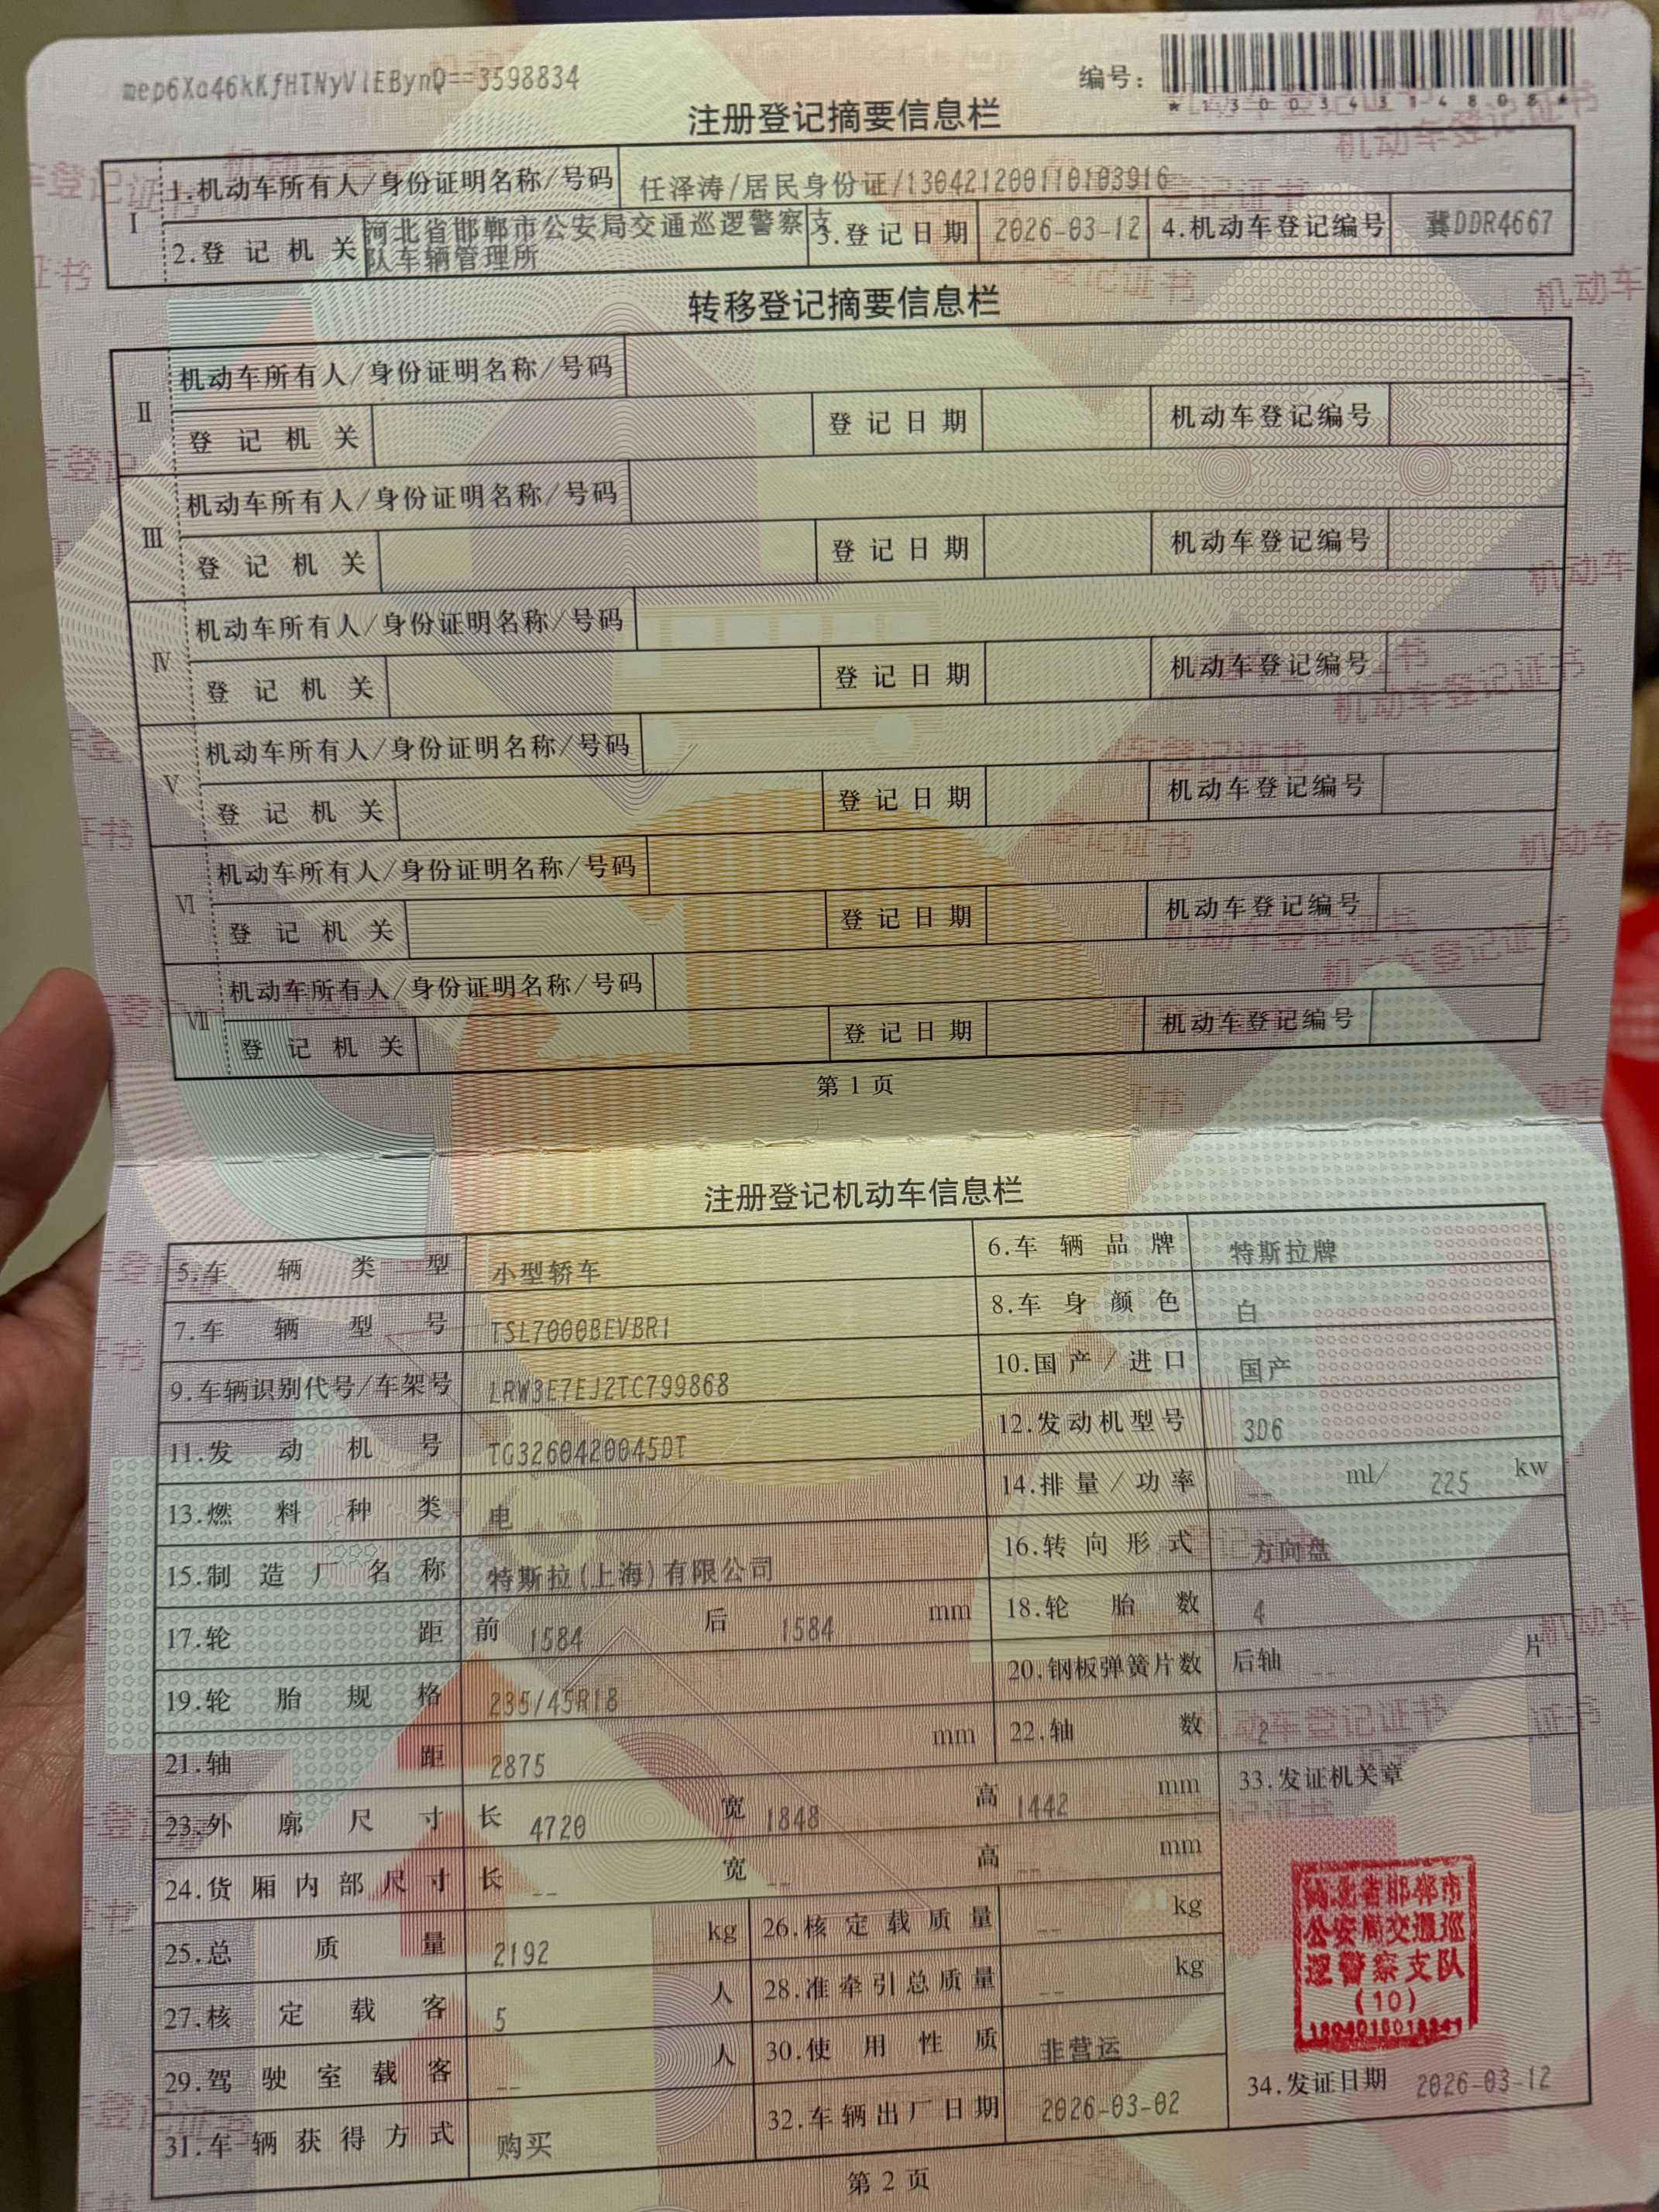 mep6Xa46kKfHTNyVlEBynQ==3598834
编号：
*130034314808*
注册登记摘要信息栏
I
1.机动车所有人/身份证明名称/号码 任泽涛/居民身份证/130421200110103916
2.登记机关 河北省邯郸市公安局交通巡逻警察支队车辆管理所 3.登记日期 2026-03-12 4.机动车登记编号 冀DDR4667
转移登记摘要信息栏
II
机动车所有人/身份证明名称/号码
登记机关 登记日期 机动车登记编号
III
机动车所有人/身份证明名称/号码
登记机关 登记日期 机动车登记编号
IV
机动车所有人/身份证明名称/号码
登记机关 登记日期 机动车登记编号
V
机动车所有人/身份证明名称/号码
登记机关 登记日期 机动车登记编号
VI
机动车所有人/身份证明名称/号码
登记机关 登记日期 机动车登记编号
VII
机动车所有人/身份证明名称/号码
登记机关 登记日期 机动车登记编号
第 1 页
注册登记机动车信息栏
5.车辆类型 小型轿车 6.车辆品牌 特斯拉牌
7.车辆型号 TSL7000BEVBR1 8.车身颜色 白
9.车辆识别代号/车架号 LRW3E7EJ2TC799868 10.国产/进口 国产
11.发动机号 TG3260420045DT 12.发动机型号 3D6
13.燃料种类 电 14.排量/功率 -- ml/ 225 kw
15.制造厂名称 特斯拉(上海)有限公司 16.转向形式 方向盘
17.轮距 前 1584 后 1584 mm 18.轮胎数 4
19.轮胎规格 235/45R18 20.钢板弹簧片数 后轴 -- 片
21.轴距 2875 mm 22.轴数 2
23.外廓尺寸 长 4720 宽 1848 高 1442 mm 33.发证机关章
24.货厢内部尺寸 长 -- 宽 -- 高 -- mm
25.总质量 2192 kg 26.核定载质量 -- kg
27.核定载客 5 人 28.准牵引总质量 -- kg
29.驾驶室载客 -- 人 30.使用性质 非营运
31.车辆获得方式 购买 32.车辆出厂日期 2026-03-02 34.发证日期 2026-03-12
河北省邯郸市
公安局交通巡
逻警察支队
(10)
第 2 页